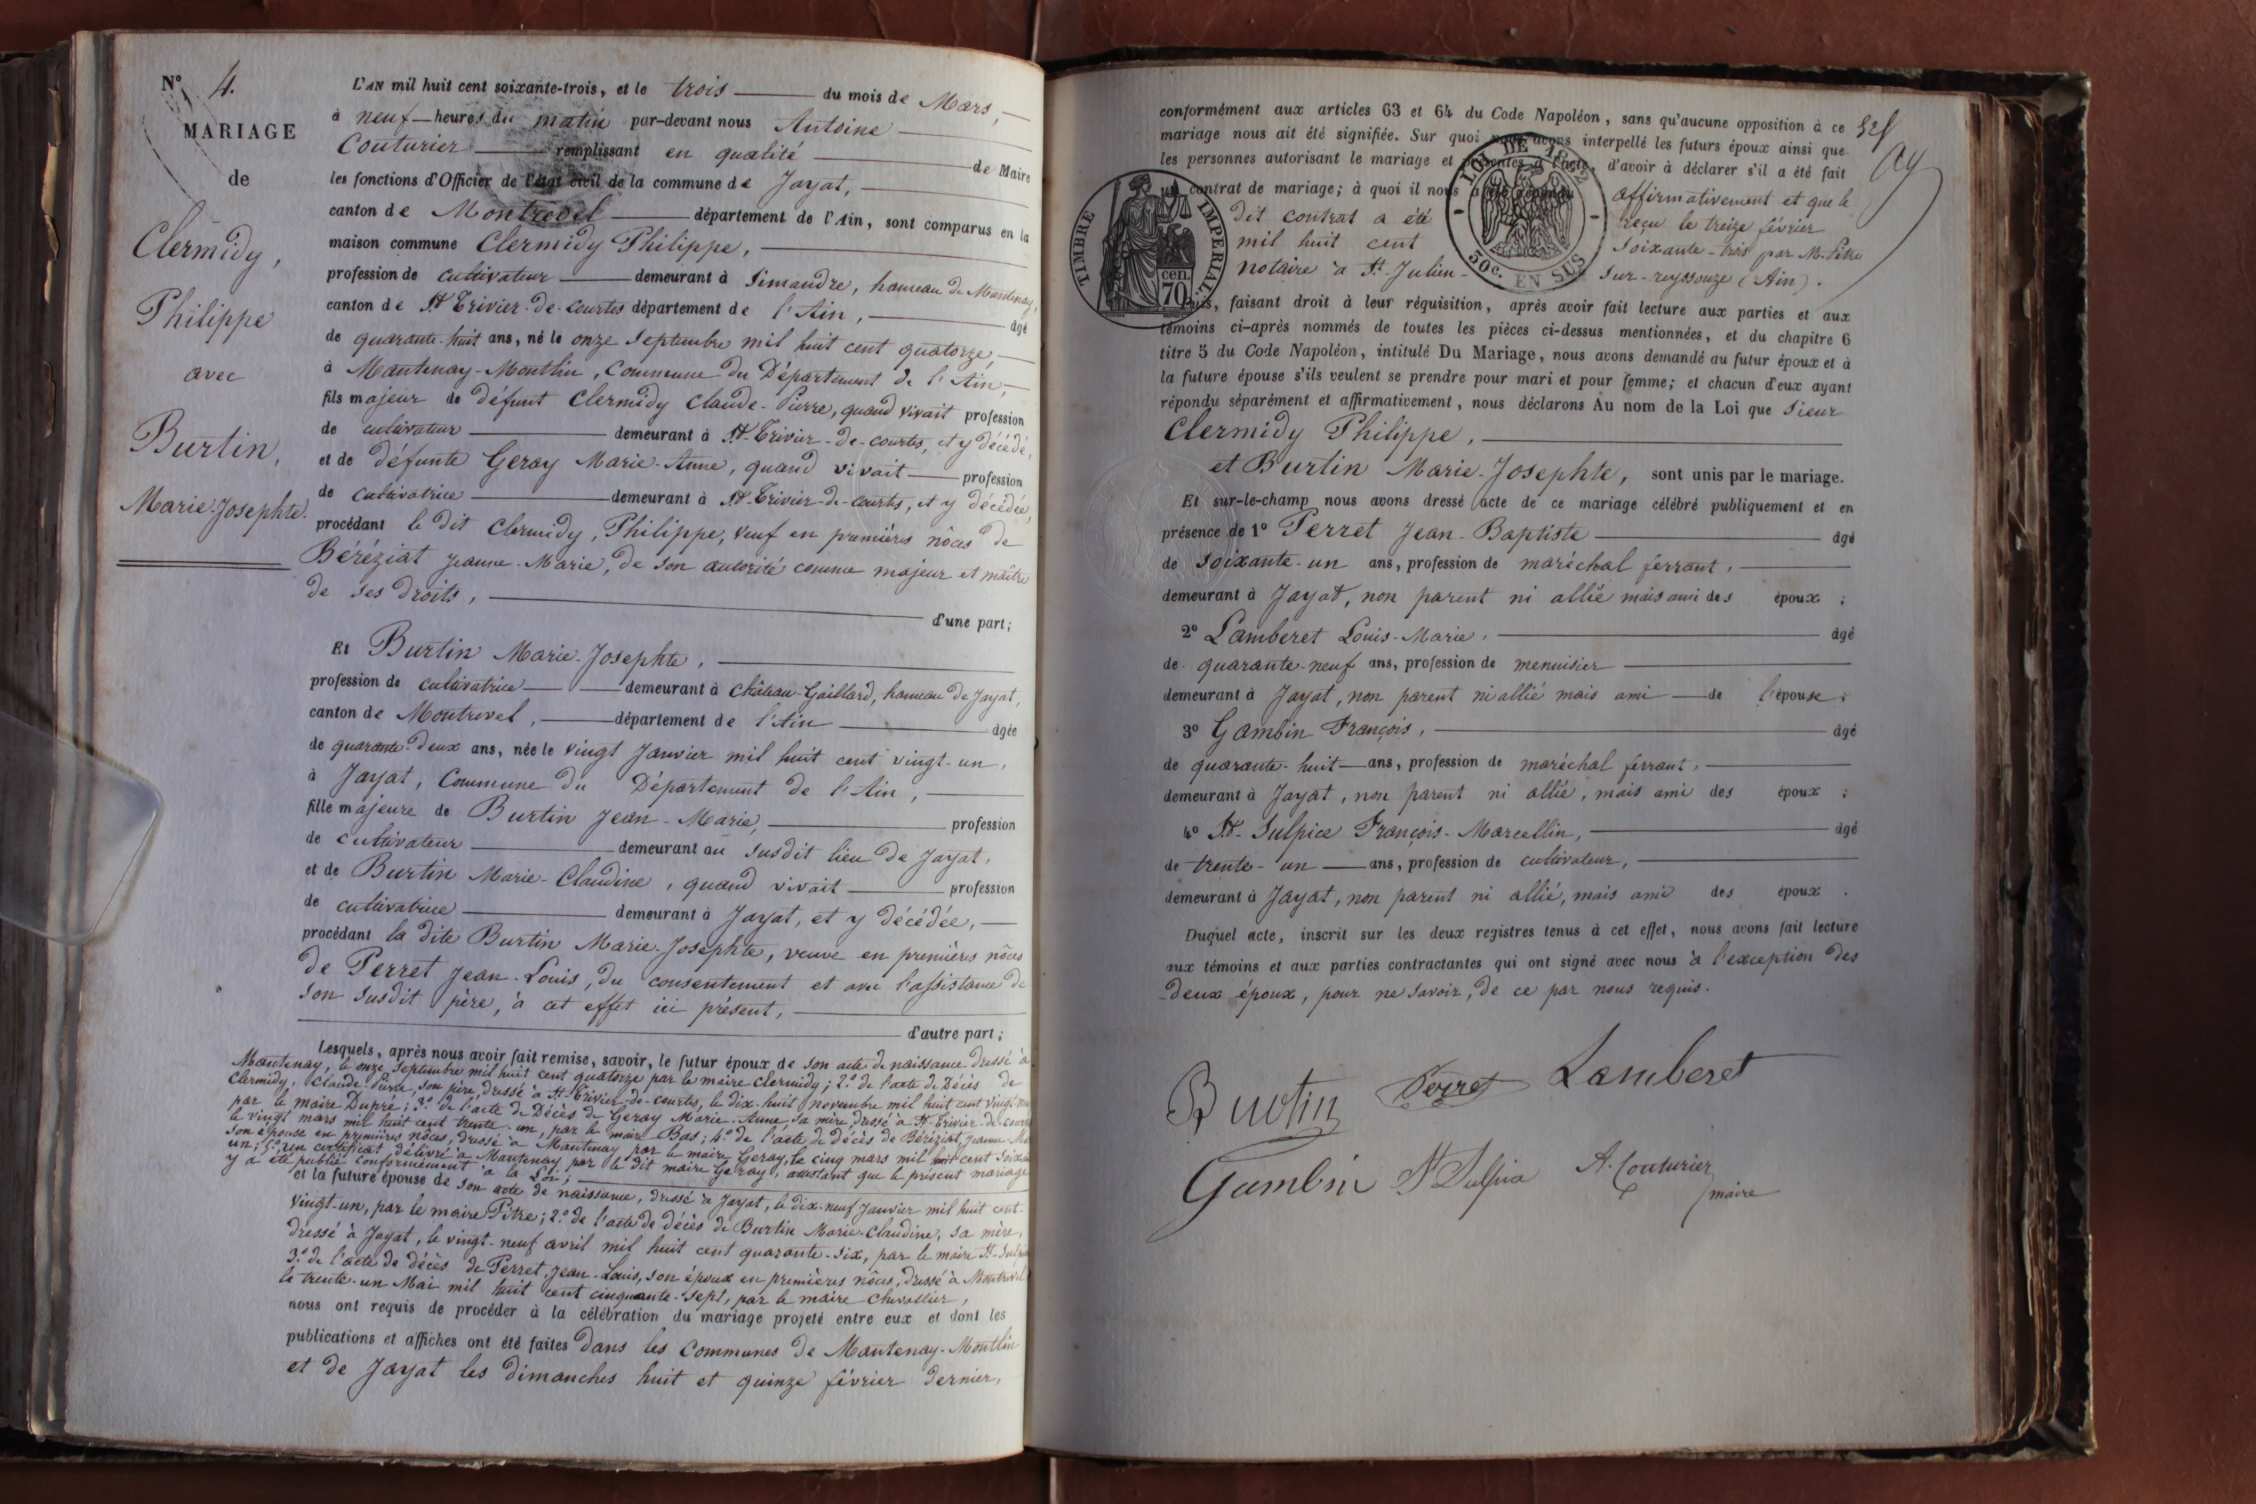 N° 4.
MARIAGE
de
Clermidy,
Philippe
avec
Burtin,
Marie-Josephte.
L'AN mil huit cent soixante-trois, et le trois du mois de Mars,
à neuf heures du matin par-devant nous Antoine
Couturier remplissant en qualité de Maire
les fonctions d'Officier de l'état civil de la commune de Jayat,
canton de Montrevel département de l'Ain, sont comparus en la
maison commune Clermidy Philippe,
profession de cultivateur demeurant à Simandre, hameau de Mantenay,
canton de St Trivier-de-Courtes département de l'Ain, âgé
de quarante-huit ans, né le onze Septembre mil huit cent quatorze,
à Mantenay-Montlin, Commune du Département de l'Ain,
fils majeur de défunt Clermidy Claude-Pierre, quand vivait profession
de cultivateur demeurant à St-Trivier-de-courtes, et y décédé,
et de défunte Geray Marie-Anne, quand vivait profession
de cultivatrice demeurant à St-Trivier-de-courtes, et y décédée,
procédant le dit Clermidy, Philippe, veuf en premières nôces de
Béréziat Jeanne-Marie, de son autorité comme majeur et maître
de ses droits,
d'une part;
Et Burtin Marie-Josephte,
profession de cultivatrice demeurant à Château-Gaillard, hameau de Jayat,
canton de Montrevel, département de l'Ain âgée
de quarante-deux ans, née le vingt Janvier mil huit cent vingt-un,
à Jayat, Commune du Département de l'Ain,
fille majeure de Burtin Jean-Marie, profession
de cultivateur demeurant au susdit lieu de Jayat,
et de Burtin Marie-Claudine, quand vivait profession
de cultivatrice demeurant à Jayat, et y décédée,
procédant la dite Burtin Marie-Josephte, veuve en premières nôces
de Perret Jean-Louis, du consentement et avec l'assistance de
son susdit père, à cet effet ici présent,
d'autre part;
Lesquels, après nous avoir fait remise, savoir, le futur époux de son acte de naissance dressé à
Mantenay, le onze Septembre mil huit cent quatorze par le maire Clermidy; 2° de l'acte de décès de
Clermidy, Claude-Pierre, son père, dressé à St-Trivier-de-courtes, le dix-huit novembre mil huit cent vingt
par le maire Dupré; 3° de l'acte de Décès de Geray Marie-Anne sa mère, dressé à St-Trivier-de-courtes
le vingt mars mil huit cent trente-un, par le maire Bas; 4° de l'acte de décès de Béréziat, Jeanne-Marie
son épouse en premières nôces, dressé à Mantenay par le maire Geray, le cinq mars mil huit cent soixante
un; 5° un certificat délivré à Mantenay, par le dit maire Geray, attestant que le présent mariage
y a été publié conformément à la Loi;
et la future épouse de son acte de naissance, dressé à Jayat, le dix-neuf Janvier mil huit cent
vingt-un, par le maire Pitre; 2° de l'acte de décès de Burtin Marie-Claudine, sa mère,
dressé à Jayat, le vingt-neuf avril mil huit cent quarante-six, par le maire St-Sulpice
3° de l'acte de décès de Perret, Jean-Louis, son époux en premières nôces, dressé à Montrevel
le trente-un Mai mil huit cent cinquante-sept, par le maire Chevallier,
nous ont requis de procéder à la célébration du mariage projeté entre eux et dont les
publications et affiches ont été faites dans les Communes de Mantenay-Montlin
et de Jayat les dimanches huit et quinze février dernier,
conformément aux articles 63 et 64 du Code Napoléon, sans qu'aucune opposition à ce
mariage nous ait été signifiée. Sur quoi nous avons interpellé les futurs époux ainsi que
les personnes autorisant le mariage et présentes à l'acte, d'avoir à déclarer s'il a été fait
un contrat de mariage; à quoi il nous a été répondu affirmativement et que le
dit contrat a été reçu le treize février
mil huit cent soixante-trois par M. Pitre
notaire à St-Julien-sur-reyssouze (Ain).
TIMBRE IMPERIAL.
70 cen.
LOI DE 1862
50c. EN SUS
Puis, faisant droit à leur réquisition, après avoir fait lecture aux parties et aux
témoins ci-après nommés de toutes les pièces ci-dessus mentionnées, et du chapitre 6
titre 5 du Code Napoléon, intitulé Du Mariage, nous avons demandé au futur époux et à
la future épouse s'ils veulent se prendre pour mari et pour femme; et chacun d'eux ayant
répondu séparément et affirmativement, nous déclarons Au nom de la Loi que sieur
Clermidy Philippe,
et Burtin Marie-Josephte, sont unis par le mariage.
Et sur-le-champ nous avons dressé acte de ce mariage célébré publiquement et en
présence de 1° Perret Jean-Baptiste âgé
de soixante-un ans, profession de maréchal ferrant,
demeurant à Jayat, non parent ni allié mais ami des époux;
2° Lamberet Louis-Marie, âgé
de quarante-neuf ans, profession de menuisier
demeurant à Jayat, non parent ni allié mais ami de l'épouse;
3° Gambin François, âgé
de quarante-huit ans, profession de maréchal ferrant,
demeurant à Jayat, non parent ni allié, mais ami des époux;
4° St-Sulpice François-Marcellin, âgé
de trente-un ans, profession de cultivateur,
demeurant à Jayat, non parent ni allié, mais ami des époux.
Duquel acte, inscrit sur les deux registres tenus à cet effet, nous avons fait lecture
aux témoins et aux parties contractantes qui ont signé avec nous à l'exception des
deux époux, pour ne savoir, de ce par nous requis.
Burtin Perret Lamberet
Gambin St Sulpice A. Couturier
maire